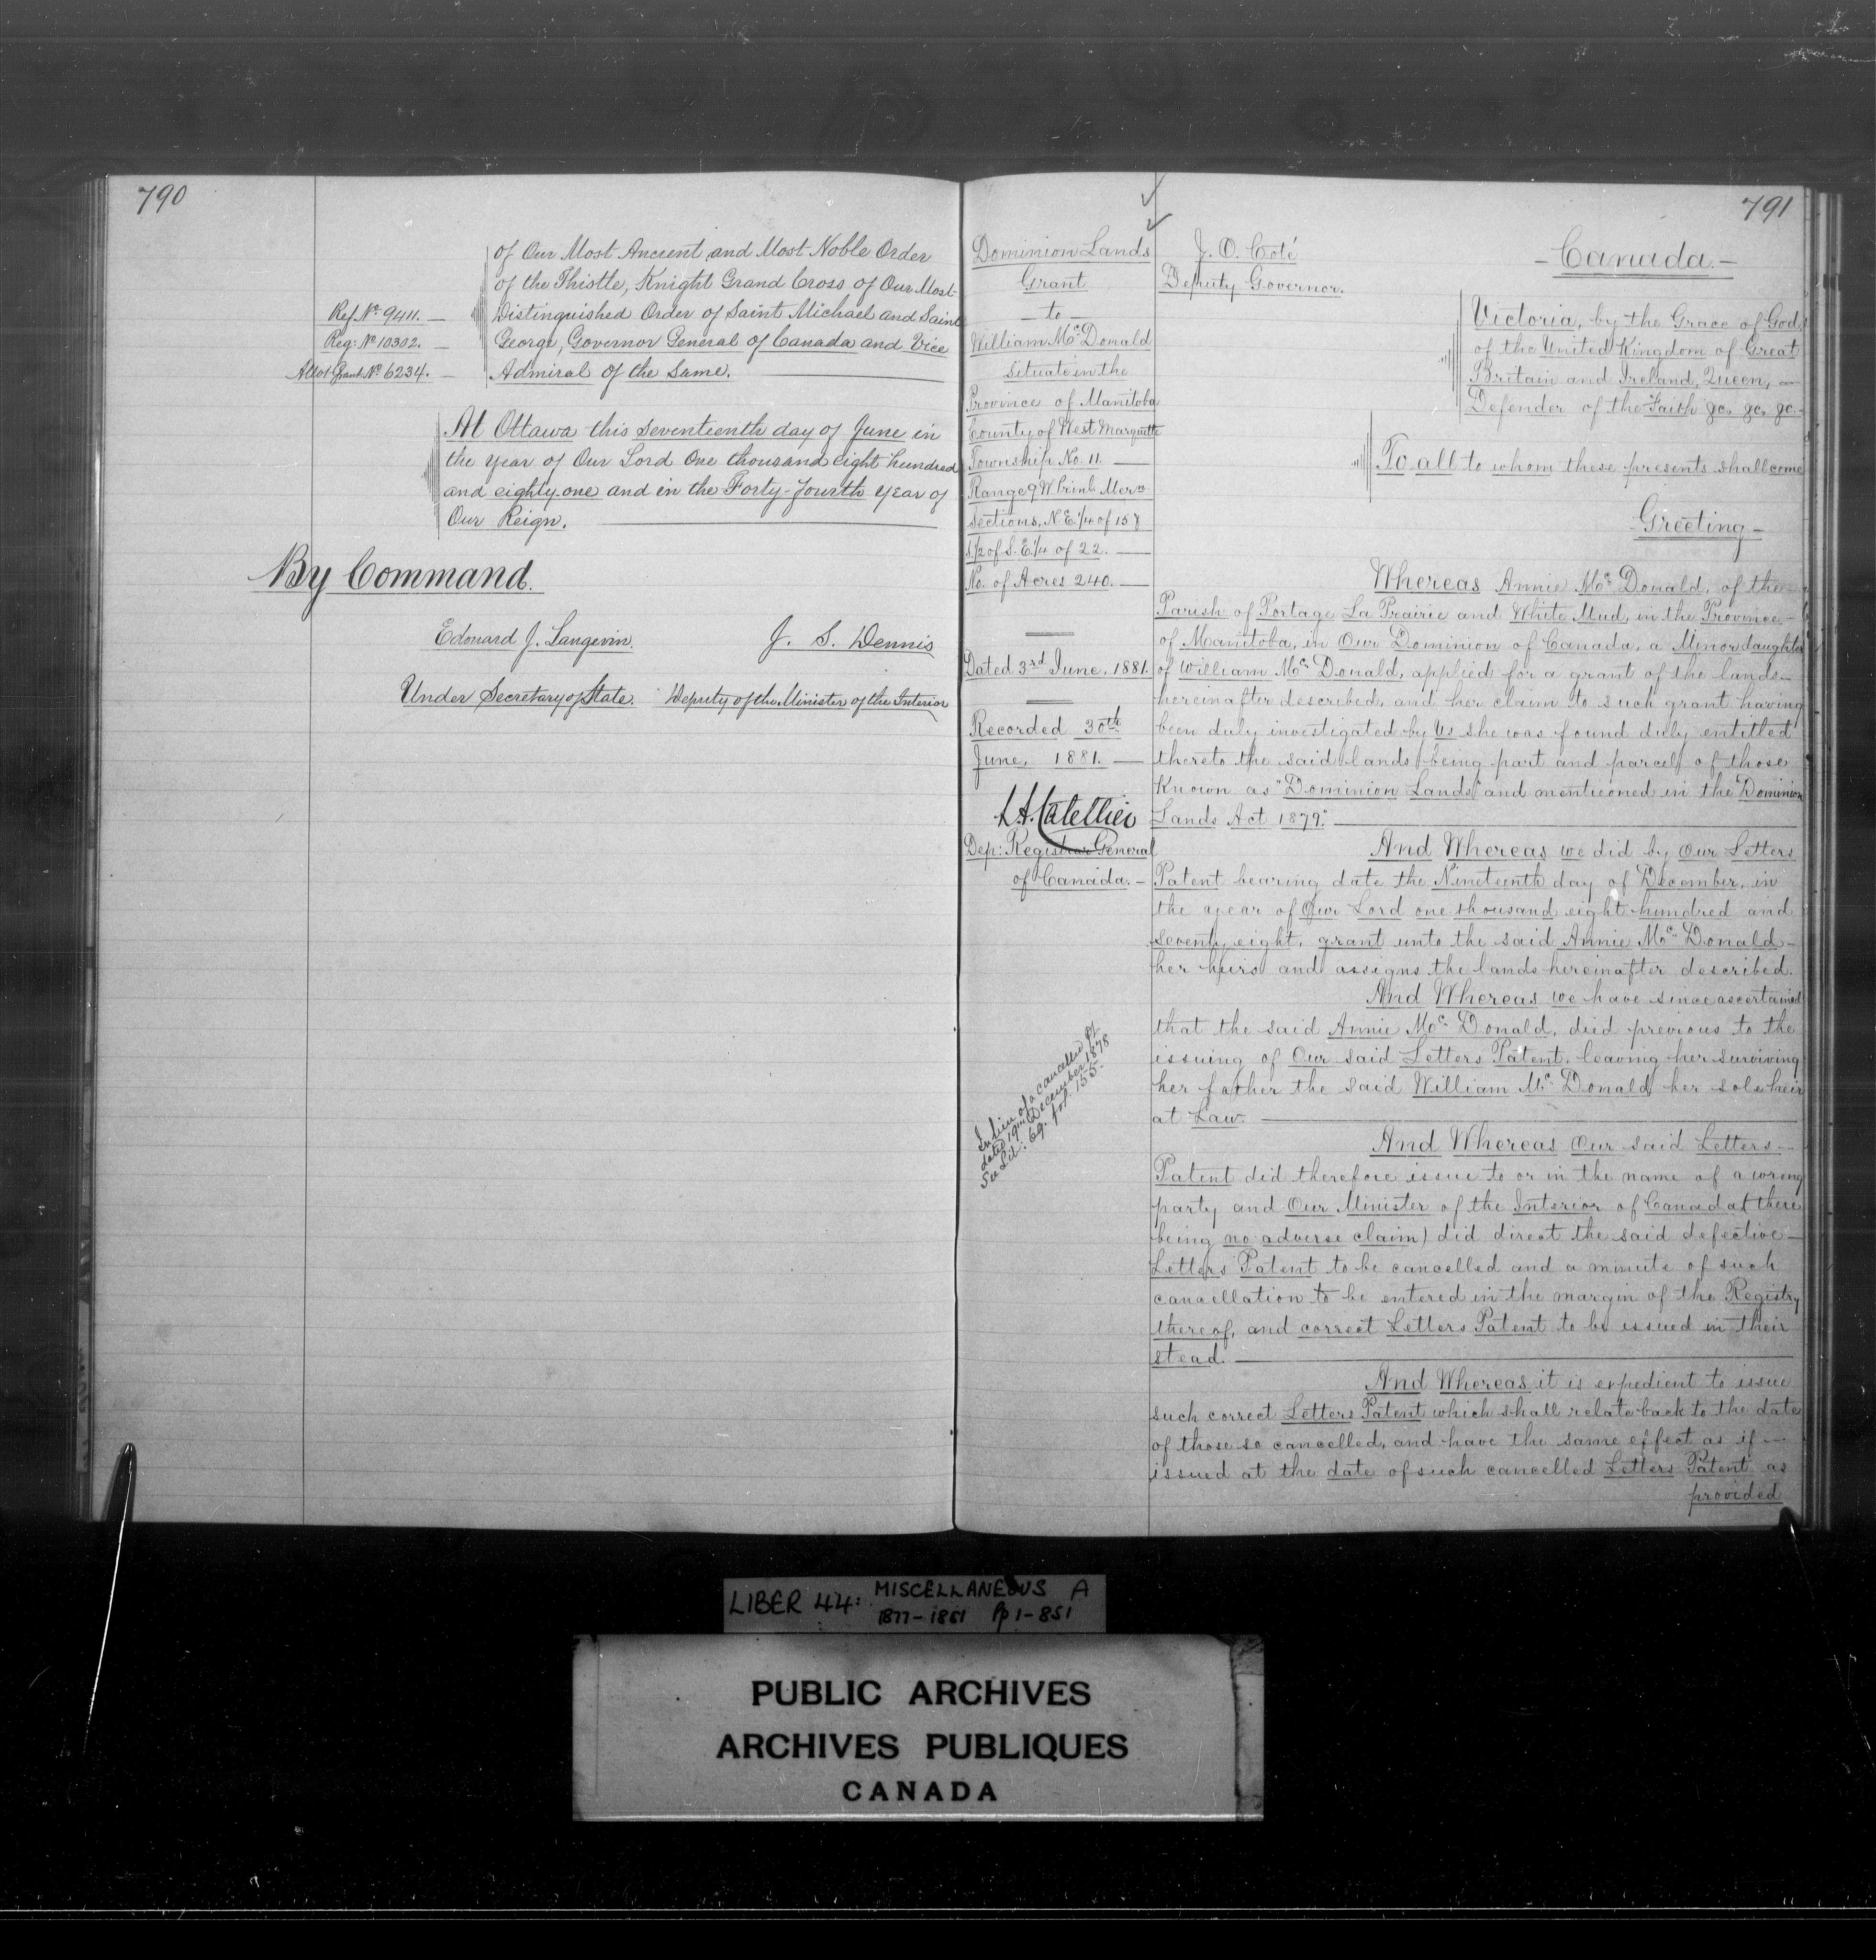 790
of Our Most Ancient and Most Noble Order
of the Thistle, Knight Grand Cross of Our Most
Distinguished Order of Saint Michael and Saint
George, Governor General of Canada and Vice
Admiral of the Same.
Ref. No. 9411.
Reg: No 10302.
Allot Grant No 6234.
At Ottawa this seventeenth day of June in
the year of Our Lord One thousand eight hundred
and eighty-one and in the Forty-fourth year of
Our Reign.
By Command.
Edouard J. Langevin. J. S. Dennis
Under Secretary of State. Deputy of the Minister of the Interior
791
Dominion Lands
Grant
— to —
William Mc Donald
Situate in the
Province of Manitoba
County of West Marquette
Township No. 11.
Range 9 W. Prinl. Mern.
Sections, N.E. 1/4 of 15 &
S. 1/2 of S.E. 1/4 of 22.
No. of Acres 240.
Dated 3rd June, 1881.
Recorded 30th
June, 1881.
L. A. Catellier
Dep: Registrar General
of Canada.
In lieu of a cancelled Pt
dated 19th December 1878
See Lib: 69. fol. 155.
J. O. Coté
Deputy Governor.
— Canada. —
Victoria, by the Grace of God,
of the United Kingdom of Great
Britain and Ireland, Queen, —
Defender of the Faith &c, &c, &c.
To all to whom these presents shall come
— Greeting —
Whereas Annie Mc Donald, of the
Parish of Portage La Prairie and White Mud, in the Province
of Manitoba, in Our Dominion of Canada, a Minor daughter
of William Mc Donald, applied for a grant of the lands
hereinafter described, and her claim to such grant having
been duly investigated by Us she was found duly entitled
thereto the said lands being part and parcel of those
Known as "Dominion Lands" and mentioned in the "Dominion
Lands Act 1879."
And Whereas we did by Our Letters
Patent bearing date the Nineteenth day of December, in
the year of Our Lord one thousand eight hundred and
seventy eight, grant unto the said Annie Mc Donald
her heirs and assigns the lands hereinafter described.
And Whereas we have since ascertained
that the said Annie Mc Donald, died previous to the
issuing of Our said Letters Patent, leaving her surviving
her father the said William Mc Donald her sole heir
at Law.
And Whereas Our said Letters
Patent did therefore issue to or in the name of a wrong
party and Our Minister of the Interior of Canada (there
being no adverse claim) did direct the said defective
Letters Patent to be cancelled and a minute of such
cancellation to be entered in the margin of the Registry
thereof, and correct Letters Patent to be issued in their
stead.
And Whereas it is expedient to issue
such correct Letters Patent which shall relate back to the date
of those so cancelled, and have the same effect as if
issued at the date of such cancelled Letters Patent as
provided
LIBER 44: MISCELLANEOUS A
1877-1881 Pp 1-851
PUBLIC ARCHIVES
ARCHIVES PUBLIQUES
CANADA